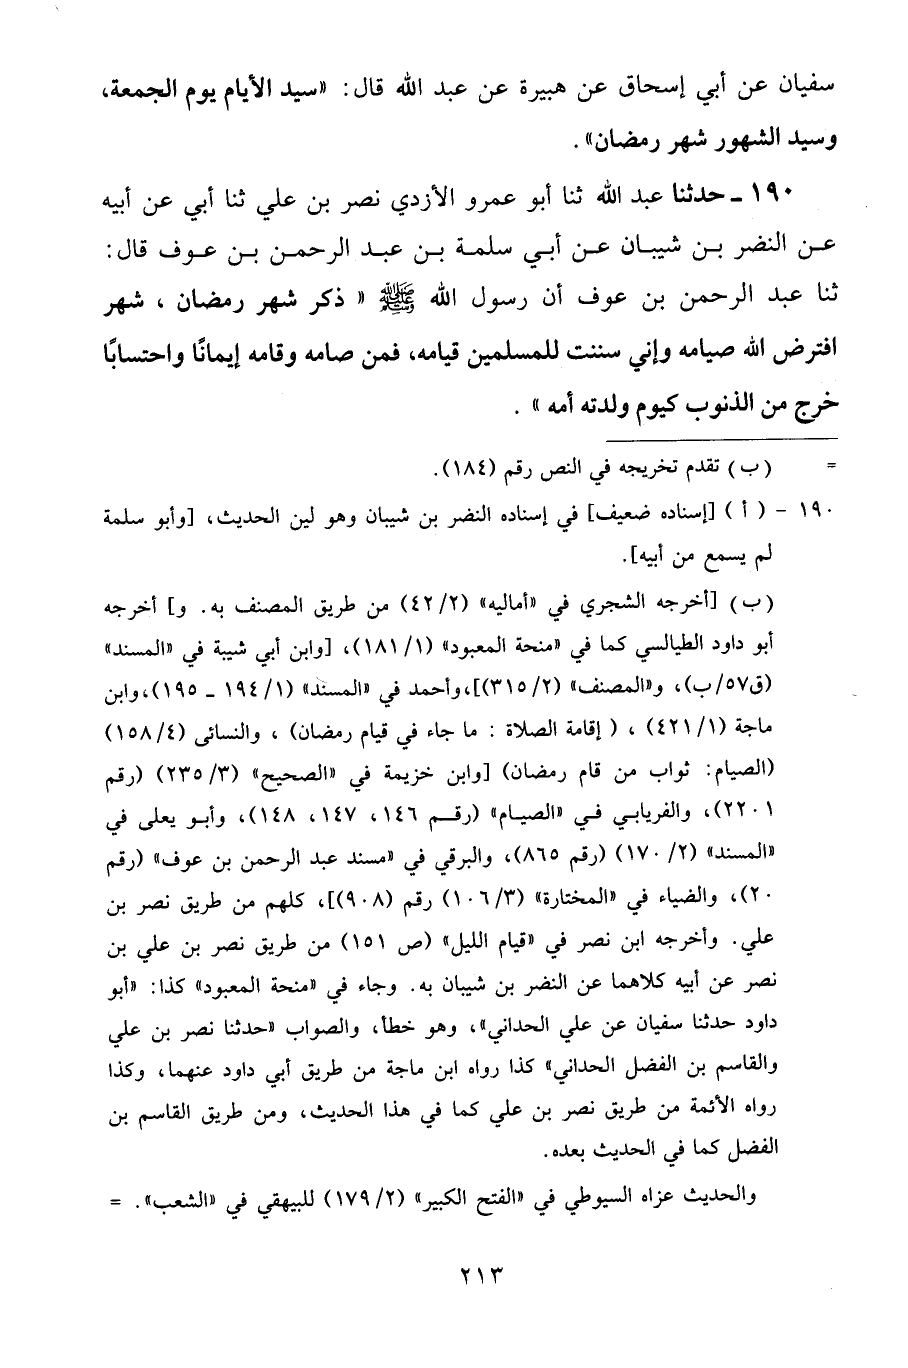 سفيان عن أبي إسحاق عن هبيرة عن عبد الله قال: «سيد الأيام يوم الجمعة،
وسيد الشهور شهر رمضان» .
١٩٠ - حدثنا عبد الله ثنا أبو عمرو الأزدي نصر بن علي ثنا أبي عن أبيه
عن النضر بن شيبان عن أبي سلمة بن عبد الرحمن بن عوف قال:
ثنا عبد الرحمن بن عوف أن رسول الله ﷺ « ذكر شهر رمضان ، شهر
افترض الله صيامه وإني سننت للمسلمين قيامه، فمن صامه وقامه إيمانًا واحتسابًا
خرج من الذنوب كيوم ولدته أمه » .
= (ب) تقدم تخريجه في النص رقم (١٨٤).
١٩٠ - ( أ ) [إسناده ضعيف] في إسناده النضر بن شيبان وهو لين الحديث، [وأبو سلمة
لم يسمع من أبيه].
(ب) [أخرجه الشجري في «أماليه» (٤٢/٢) من طريق المصنف به. و] أخرجه
أبو داود الطيالسي كما في «منحة المعبود» (١٨١/١)، [وابن أبي شيبة في «المسند»
(ق٥٧/ب)، و«المصنف» (٣١٥/٢)]،وأحمد في «المسند» (١٩٤/١ - ١٩٥)،وابن
ماجة (٤٢١/١) ، ( إقامة الصلاة : ما جاء في قيام رمضان) ، والنسائى (١٥٨/٤)
(الصيام: ثواب من قام رمضان) [وابن خزيمة في «الصحيح» (٢٣٥/٣) (رقم
٢٢٠١)، والفريابي في «الصيام» (رقم ١٤٦، ١٤٧، ١٤٨)، وأبو يعلى في
«المسند» (١٧٠/٢) (رقم ٨٦٥)، والبرقي في «مسند عبد الرحمن بن عوف» (رقم
٢٠)، والضياء في «المختارة» (١٠٦/٣) رقم (٩٠٨)]، كلهم من طريق نصر بن
علي. وأخرجه ابن نصر في «قيام الليل» (ص ١٥١) من طريق نصر بن علي بن
نصر عن أبيه كلاهما عن النضر بن شيبان به. وجاء في «منحة المعبود» كذا: «أبو
داود حدثنا سفيان عن علي الحداني»، وهو خطأ، والصواب «حدثنا نصر بن علي
والقاسم بن الفضل الحداني» كذا رواه ابن ماجة من طريق أبي داود عنهما، وكذا
رواه الأئمة من طريق نصر بن علي كما في هذا الحديث، ومن طريق القاسم بن
الفضل كما في الحديث بعده.
والحديث عزاه السيوطي في «الفتح الكبير» (١٧٩/٢) للبيهقي في «الشعب». =
٢١٣